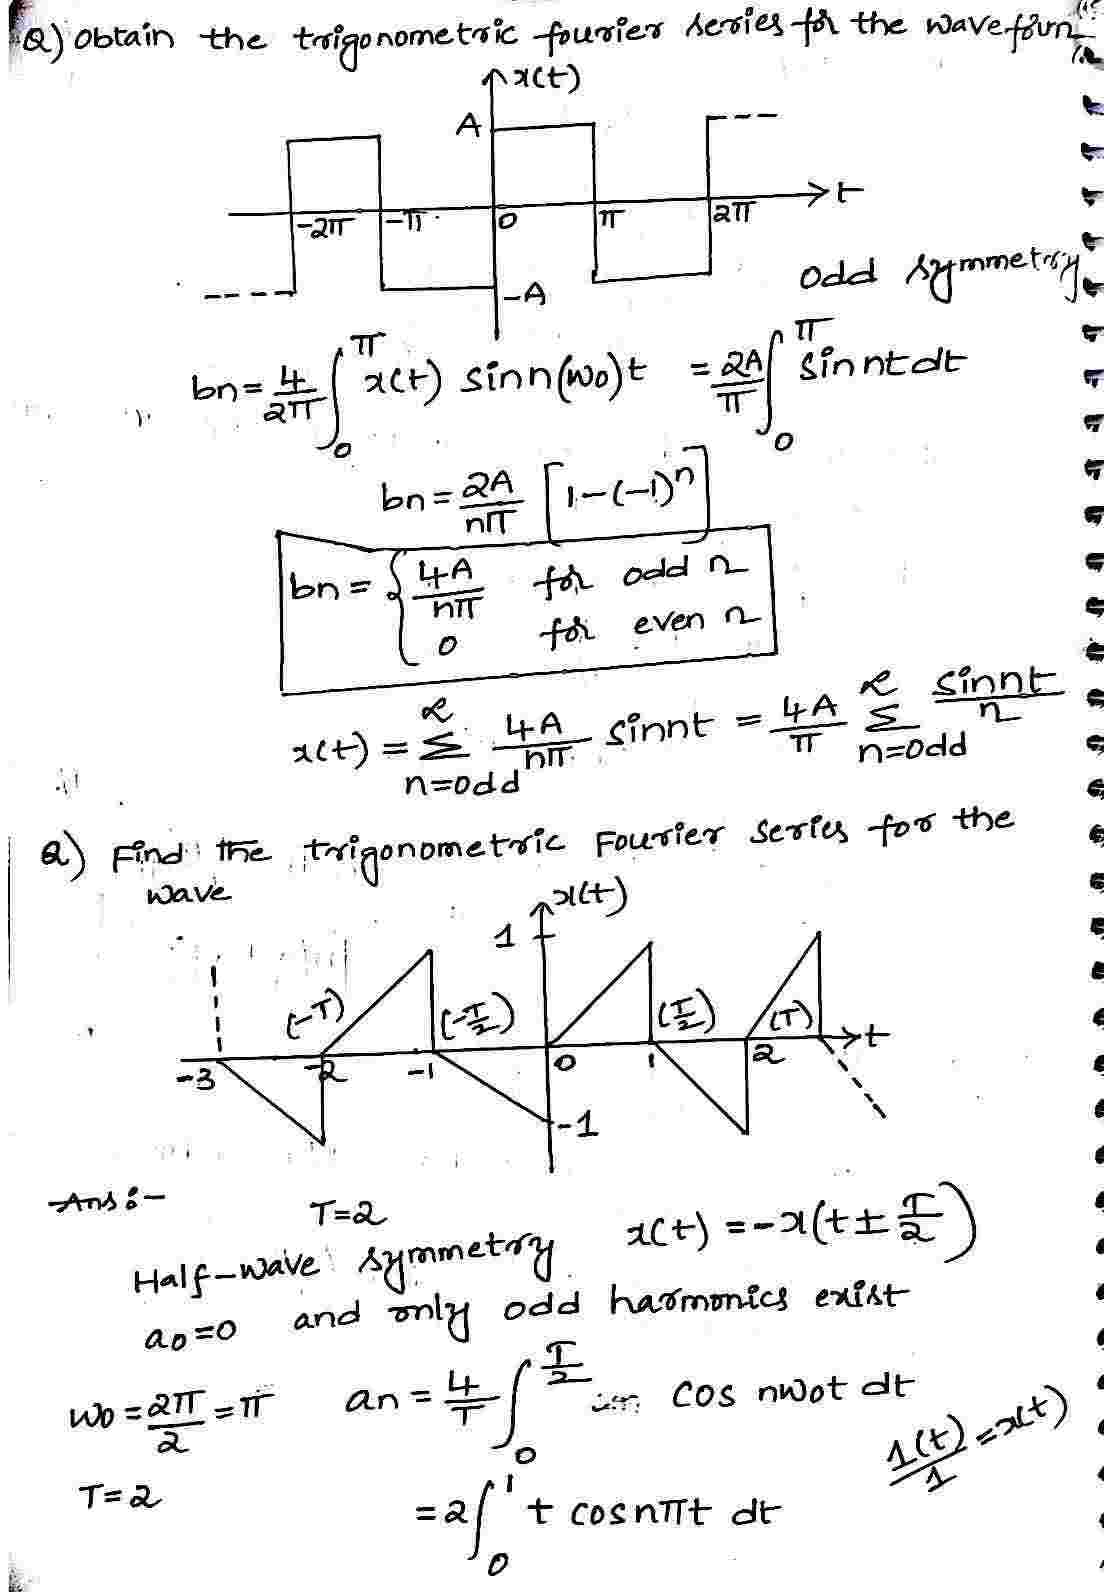 Q) Obtain the trigonometric fourier series for the waveform
x(t)
A
-2π -π 0 π 2π t
-A
odd symmetry
bn = 4/2π ∫₀^π x(t) sin n(w₀)t = 2A/π ∫₀^π sin nt dt
bn = 2A/nπ [1-(-1)ⁿ]
bn = { 4A/nπ for odd n
0 for even n
x(t) = Σ_{n=odd}^{∝} 4A/nπ sinnt = 4A/π Σ_{n=odd}^{∝} sinnt/n
Q) Find the trigonometric Fourier series for the
wave
x(t)
1
(-T) (-T/2) (T/2) (T)
-3 -2 -1 0 1 2 t
-1
Ans:-
T=2
Half-wave symmetry x(t) = -x(t ± T/2)
a₀=0 and only odd harmonics exist
w₀ = 2π/2 = π an = 4/T ∫₀^{T/2} cos nw₀t dt
1(t)/1 = x(t)
T=2 = 2∫₀^1 t cosnπt dt